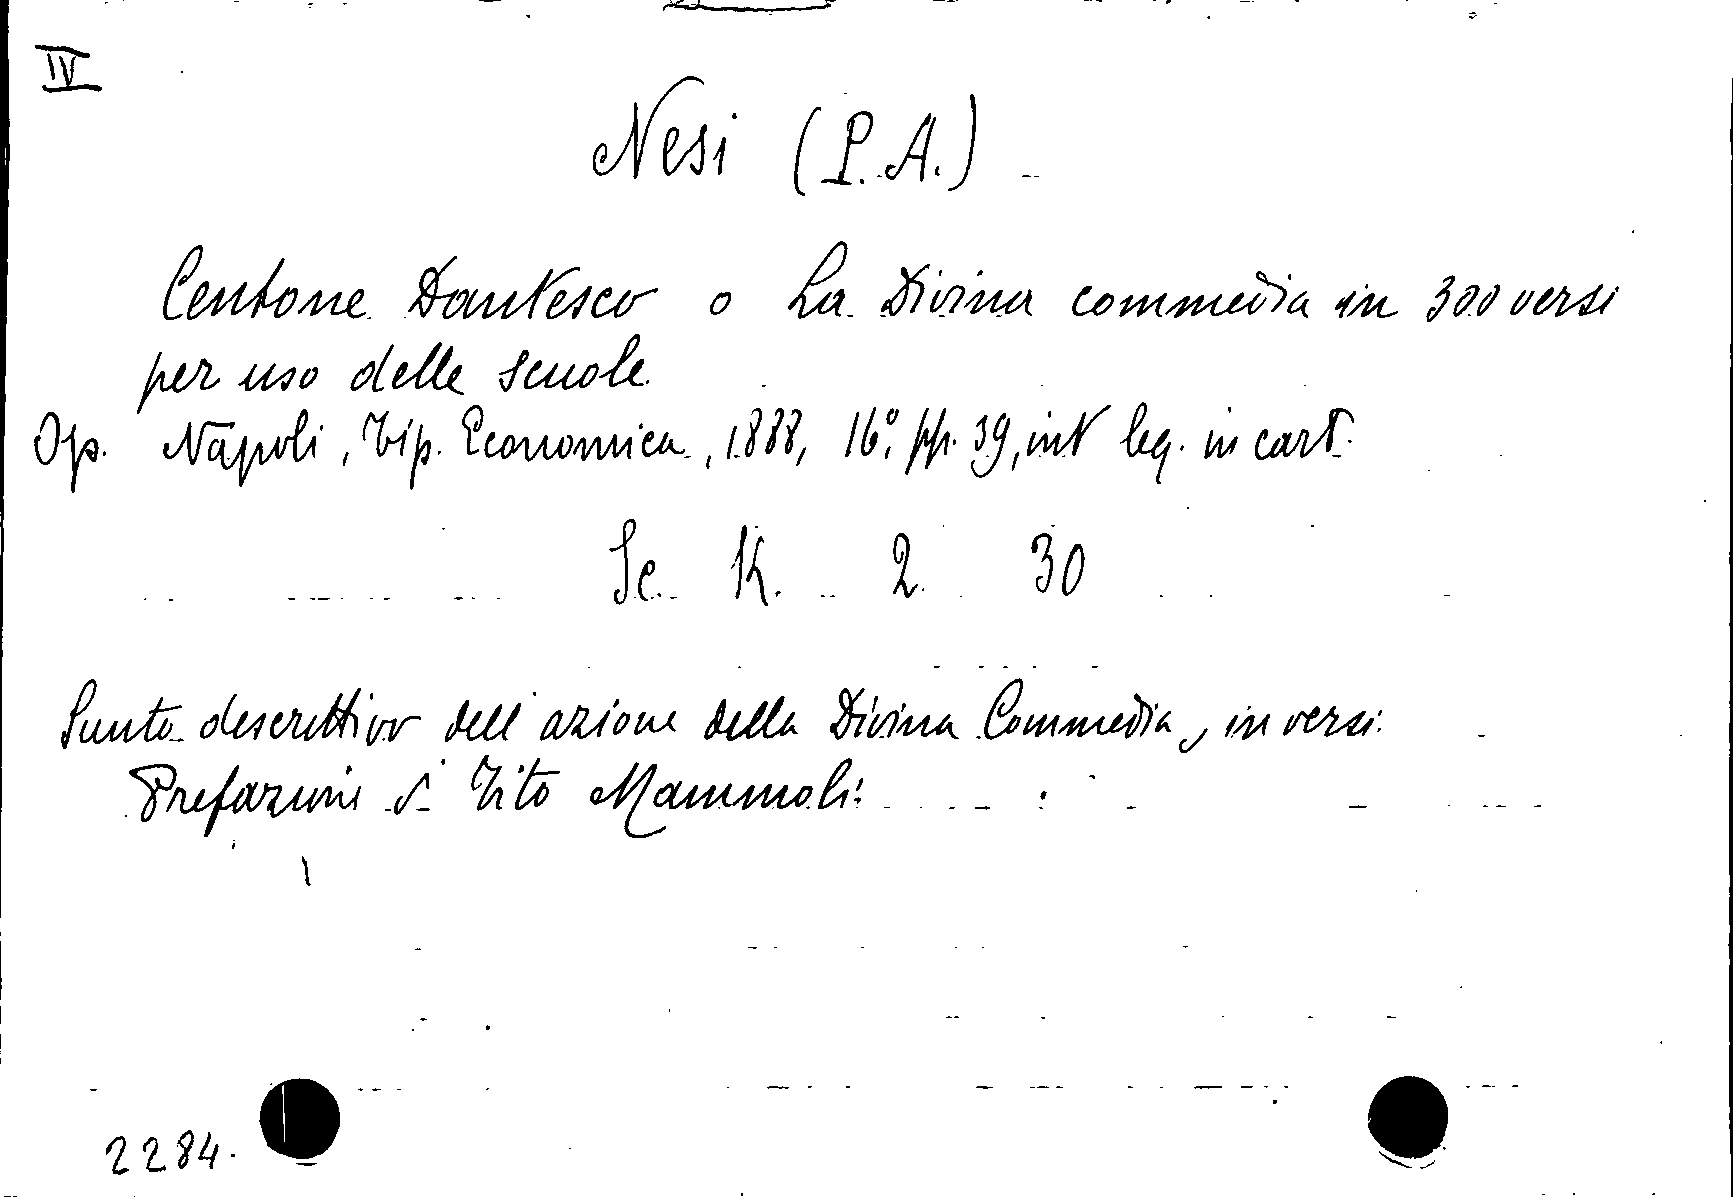 IV
Nesi (P. A.)
Centone Dantesco o La Divina commedia in 300 versi
per uso delle scuole
Op. Napoli, Tip. Economica, 1888, 16°, pp. 39, int leg. in cart.
Sc. K. 2 30
Sunto descrittivo dell'azione della Divina Commedia, in versi.
Prefazione di Tito Mammoli.
2284.